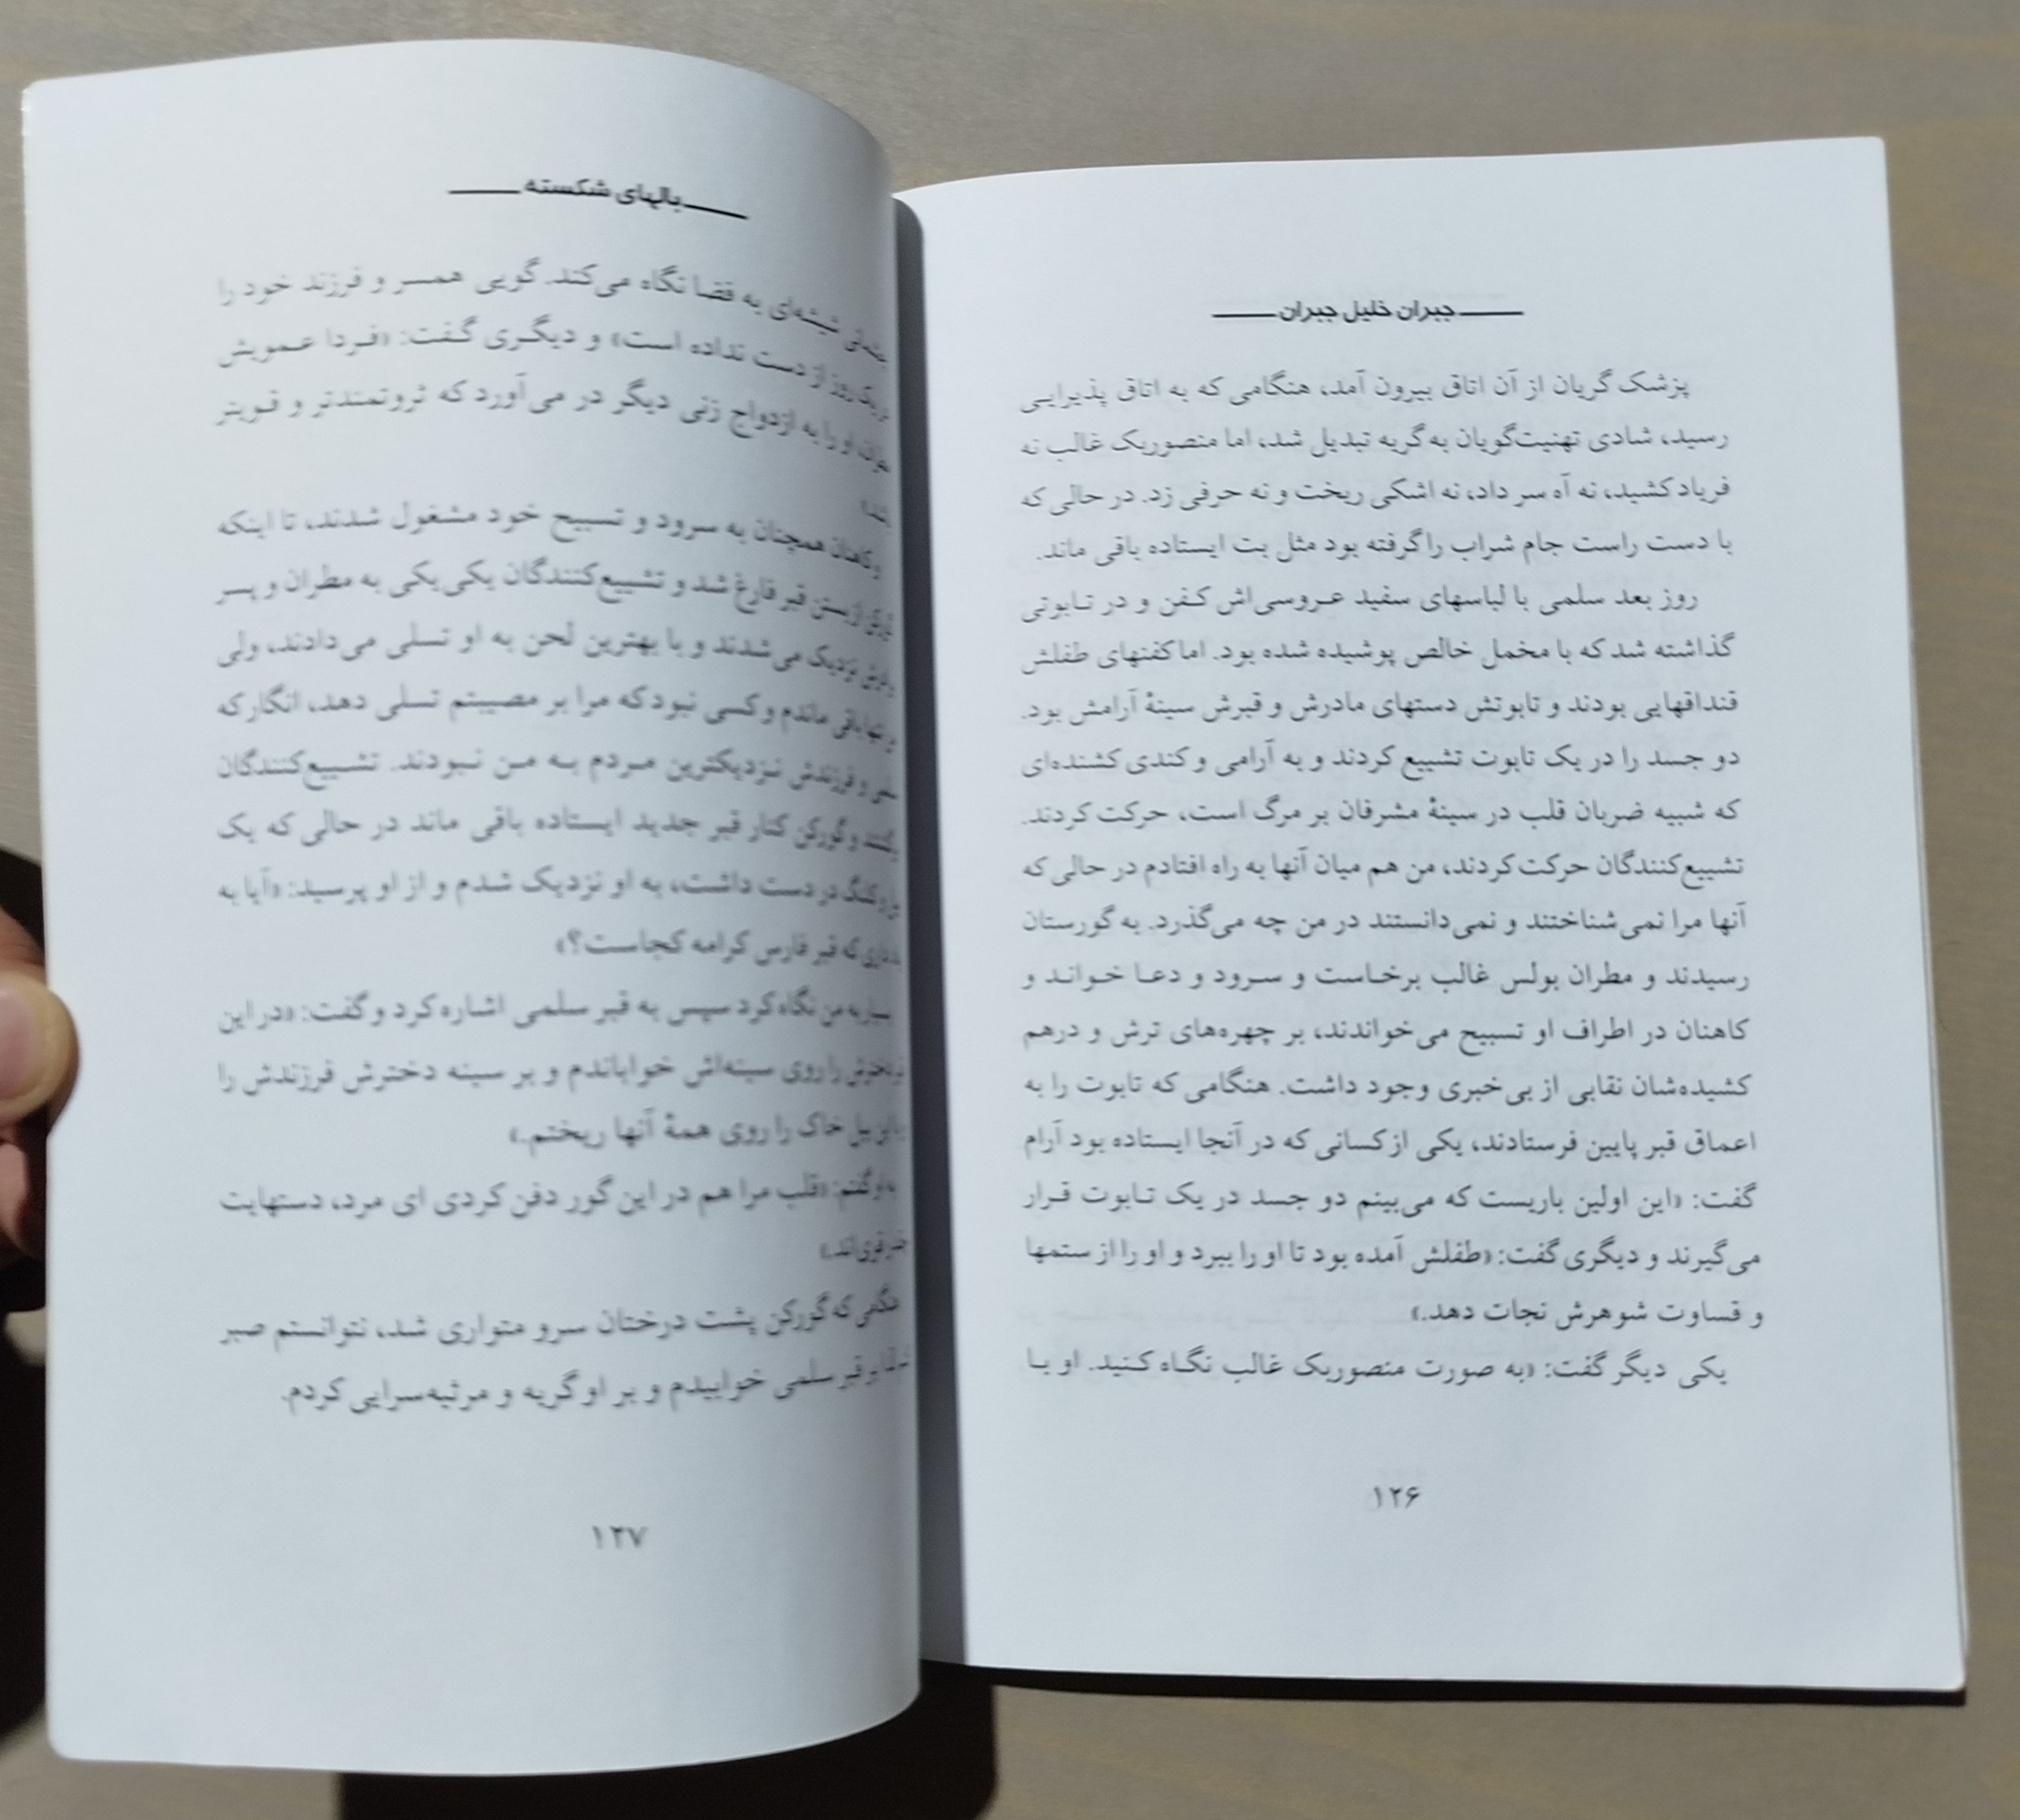 جبران خلیل جبران
پزشک گریان از آن اتاق بیرون آمد، هنگامی که به اتاق پذیرایی
رسید، شادی تهنیت‌گویان به گریه تبدیل شد، اما منصوربک غالب نه
فریاد کشید، نه آه سر داد، نه اشکی ریخت و نه حرفی زد. در حالی که
با دست راست جام شراب را گرفته بود مثل بت ایستاده باقی ماند.
روز بعد سلمی با لباسهای سفید عروسی‌اش کفن و در تابوتی
گذاشته شد که با مخمل خالص پوشیده شده بود. اما کفنهای طفلش
قنداقهایی بودند و تابوتش دستهای مادرش و قبرش سینهٔ آرامش بود.
دو جسد را در یک تابوت تشییع کردند و به آرامی و کندی کشنده‌ای
که شبیه ضربان قلب در سینهٔ مشرفان بر مرگ است، حرکت کردند.
تشییع‌کنندگان حرکت کردند، من هم میان آنها به راه افتادم در حالی که
آنها مرا نمی‌شناختند و نمی‌دانستند در من چه می‌گذرد. به گورستان
رسیدند و مطران بولس غالب برخاست و سرود و دعا خواند و
کاهنان در اطراف او تسبیح می‌خواندند، بر چهره‌های ترش و درهم
کشیده‌شان نقابی از بی‌خبری وجود داشت. هنگامی که تابوت را به
اعماق قبر پایین فرستادند، یکی از کسانی که در آنجا ایستاده بود آرام
گفت: «این اولین باریست که می‌بینم دو جسد در یک تابوت قرار
می‌گیرند و دیگری گفت: «طفلش آمده بود تا او را ببرد و او را از ستمها
و قساوت شوهرش نجات دهد.»
یکی دیگر گفت: «به صورت منصوربک غالب نگاه کنید. او با
۱۲۶
بالهای شکسته
شیشه‌ای به فضا نگاه می‌کند. گویی همسر و فرزند خود را
یک روز از دست نداده است» و دیگری گفت: «فردا عمویش
او را به ازدواج زنی دیگر در می‌آورد که ثروتمندتر و قویتر
باشد»
و کاهنان همچنان به سرود و تسبیح خود مشغول شدند، تا اینکه
از بستن قبر فارغ شد و تشییع‌کنندگان یکی‌یکی به مطران و پسر
نزدیک می‌شدند و با بهترین لحن به او تسلی می‌دادند، ولی
من تنها باقی ماندم و کسی نبود که مرا بر مصیبتم تسلی دهد، انگار که
سلمی و فرزندش نزدیکترین مردم به من نبودند. تشییع‌کنندگان
و گورکن کنار قبر جدید ایستاده باقی ماند در حالی که یک
بیل و کلنگ در دست داشت، به او نزدیک شدم و از او پرسید: «آیا به
که قبر فارس کرامه کجاست؟»
بسیار به من نگاه کرد سپس به قبر سلمی اشاره کرد و گفت: «در این
دخترش را روی سینه‌اش خواباندم و بر سینه دخترش فرزندش را
بیل خاک را روی همهٔ آنها ریختم.»
به او گفتم: «قلب مرا هم در این گور دفن کردی ای مرد، دستهایت
قوی‌اند.»
هنگامی که گورکن پشت درختان سرو متواری شد، نتوانستم صبر
بر قبر سلمی خوابیدم و بر او گریه و مرثیه‌سرایی کردم.
۱۲۷